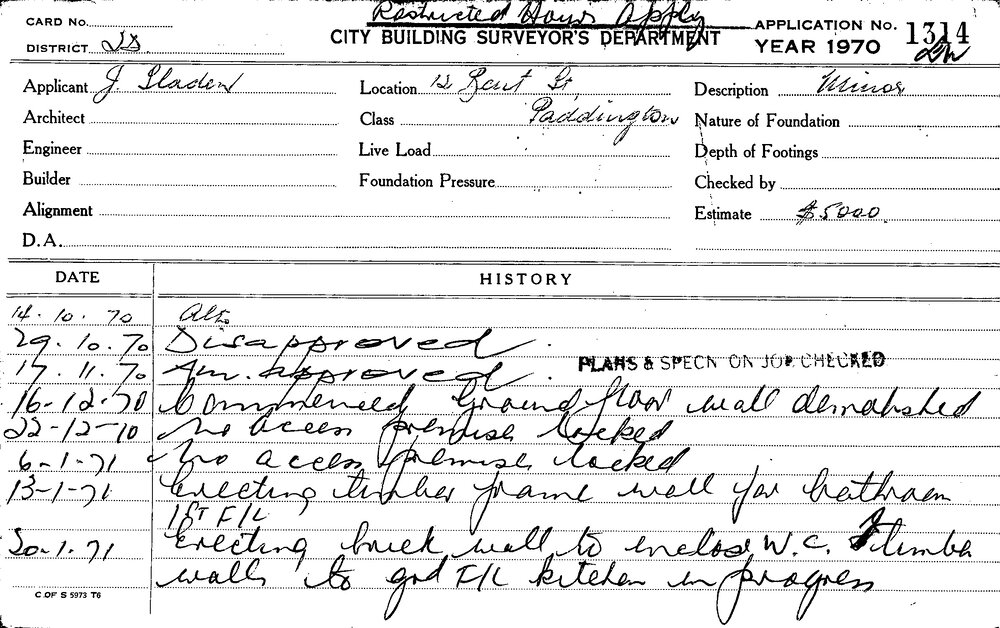 Restricted Hours Apply
CARD No.
CITY BUILDING SURVEYOR'S DEPARTMENT
APPLICATION No. 1314
DISTRICT
YEAR 1970
Applicant J. Sladen
Location 12 Rent St,
Description Minor
Architect
Class Paddington
Nature of Foundation
Engineer
Live Load
Depth of Footings
Builder
Foundation Pressure
Checked by
Alignment
Estimate $5000.
D.A.
DATE HISTORY
14.10.70 Alts
29.10.70 Disapproved.
17.11.70 Am. approved. PLANS & SPECN ON JOB CHECKED
16-12-70 Commenced Ground floor wall demolished
22-12-70 No access premises locked
6-1-71 No access premises locked
13-1-71 Erecting timber frame wall for bathroom
1ST F/L
20.1.71 Erecting brick wall to enclose W.C. & timber
walls to grd F/L kitchen in progress
C OF S 5973 T6